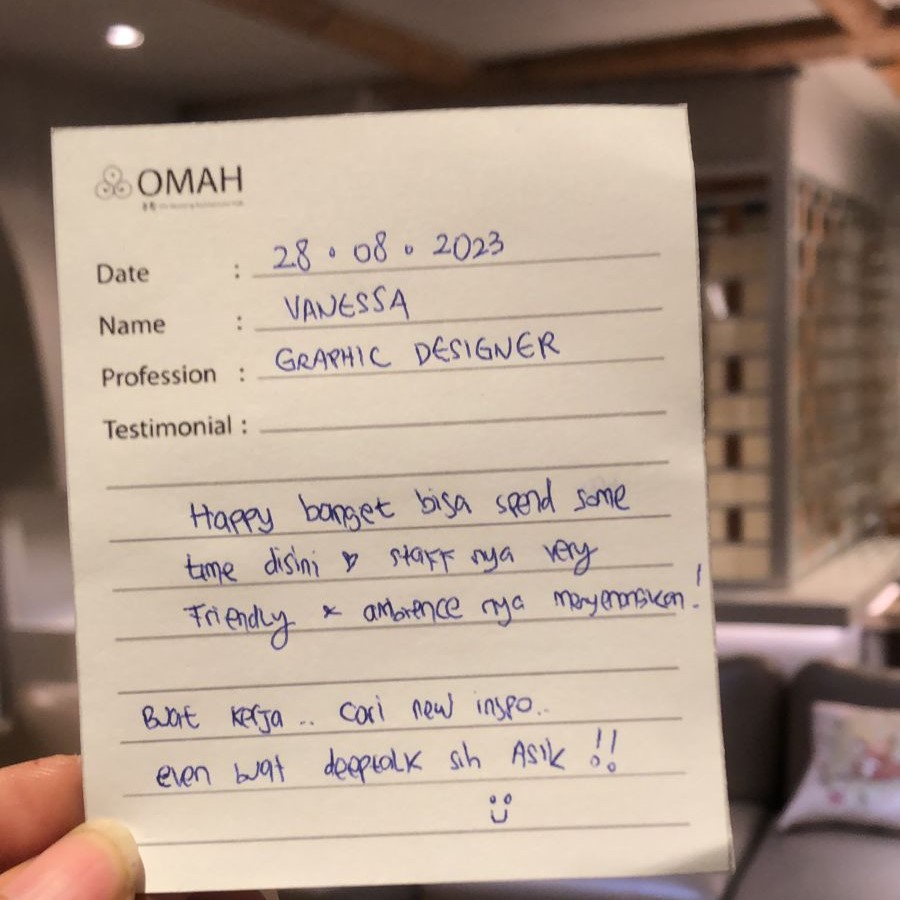 OMAH
Date : 28.08.2023
Name : VANESSA
Profession : GRAPHIC DESIGNER
Testimonial :
Happy banget bisa spend some
time disini ♡ staff nya very
Friendly & ambience nya menyenangkan!
Buat kerja .. Cari new inspo..
even buat deeptalk sih Asik !!